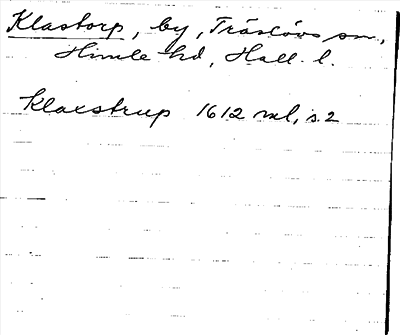 Klastorp, by, Träslövs sn,
Himle hd, Hall. l.
Klaestrup 1612 ml, s. 2